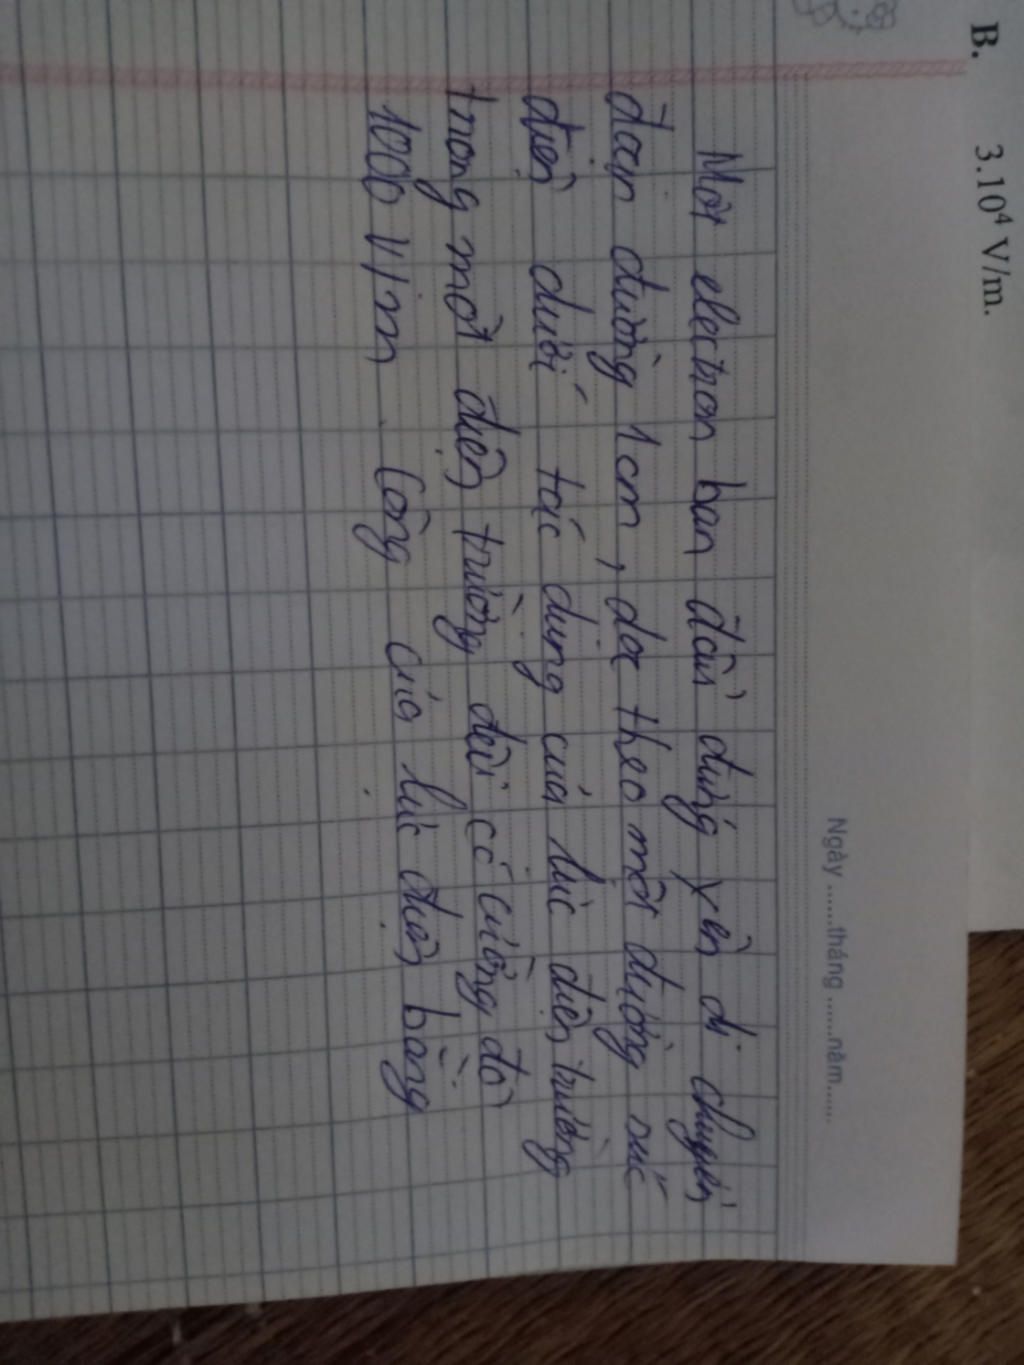 B. 3.10⁴ V/m.
Ngày ......tháng ......năm......
Một electron ban đầu đứng yên di chuyển
đoạn đường 1cm, dọc theo một đường sức
điện dưới tác dụng của lực điện trường
trong một điện trường đều có cường độ
1000 V/m. Công của lực điện bằng